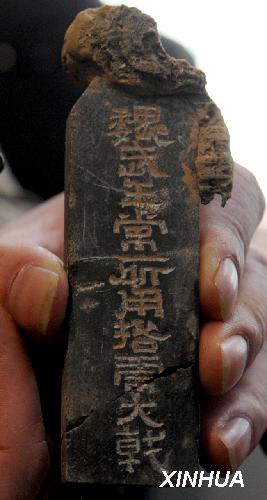 魏武王常所用挌虎大戟
XINHUA